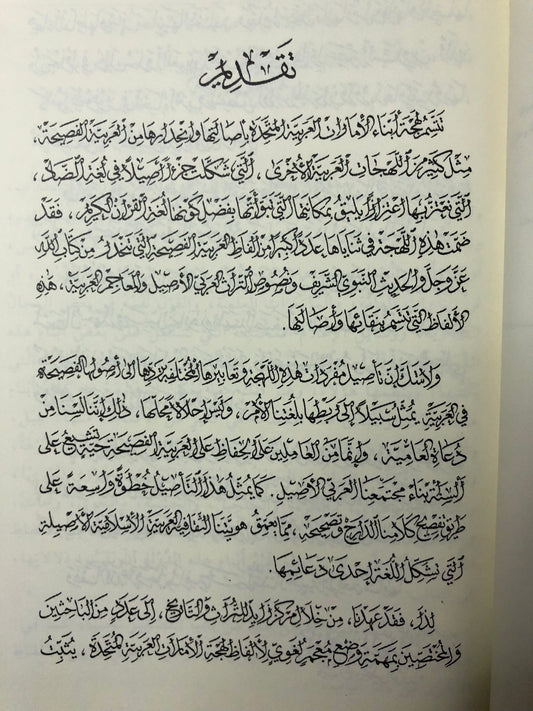 تقديم
تتسم لهجة أبناء الإمارات العربية المتحدة بأصالتها وانحدارها من العربية الفصيحة،
مثل كثير من اللهجات العربية الأخرى، التي شكلت جزءاً أصيلاً في لغة الضاد،
التي نعتز بها اعتزازاً يليق بمكانتها التي تتبوأها بفضل كونها لغة القرآن الكريم، فقد
ضمت هذه اللهجة في ثناياها عدداً كبيراً من ألفاظ العربية الفصيحة التي تنحدر من كتاب الله
عز وجل والحديث النبوي الشريف ونصوص التراث العربي الأصيل والمعاجم العربية، هذه
الألفاظ التي تتسم بنقائها وأصالتها.
ولا شك أن تأصيل مفردات هذه اللهجة وتعابيرها المختلفة بردها إلى أصولها الفصيحة
في العربية يمثل سبيلاً إلى ربطها بلغتنا الأم، وليس إحلالاً محلها، ذلك إننا لسنا من
دعاة العامية، وإنما من العاملين على الحفاظ على العربية الفصيحة حية تشيع على
ألسنة أبناء مجتمعنا العربي الأصيل. كما يمثل هذا التأصيل خطوة واسعة على
طريق تفصيح كلامنا الدارج وتصحيحه، مما يعمق هويتنا الثقافية العربية الإسلامية الأصيلة
التي تشكل اللغة إحدى دعائمها.
لذا، فقد عهدنا، من خلال مركز زايد للتراث والتاريخ، إلى عدد من الباحثين
والمختصين بمهمة وضع معجم لغوي لألفاظ لهجة الإمارات العربية المتحدة، يثبت